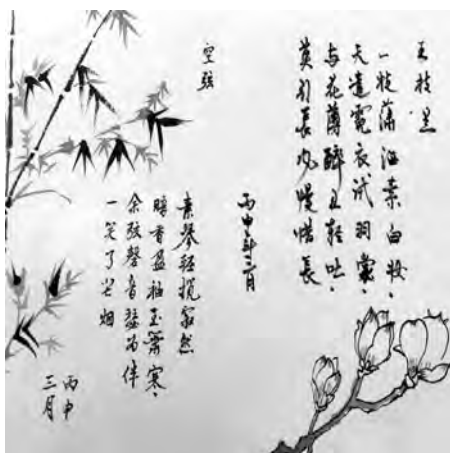 一枝素白妆，
天遣霓衣试羽裳，
与花薄醉且轻吐，
莫引長风慢惜長
丙申年三月
空弦
素琴轻揽寂然
暗香盈袖玉箫寒，
余弦声音瑟为伴
一笑了尘烟
丙申
三月